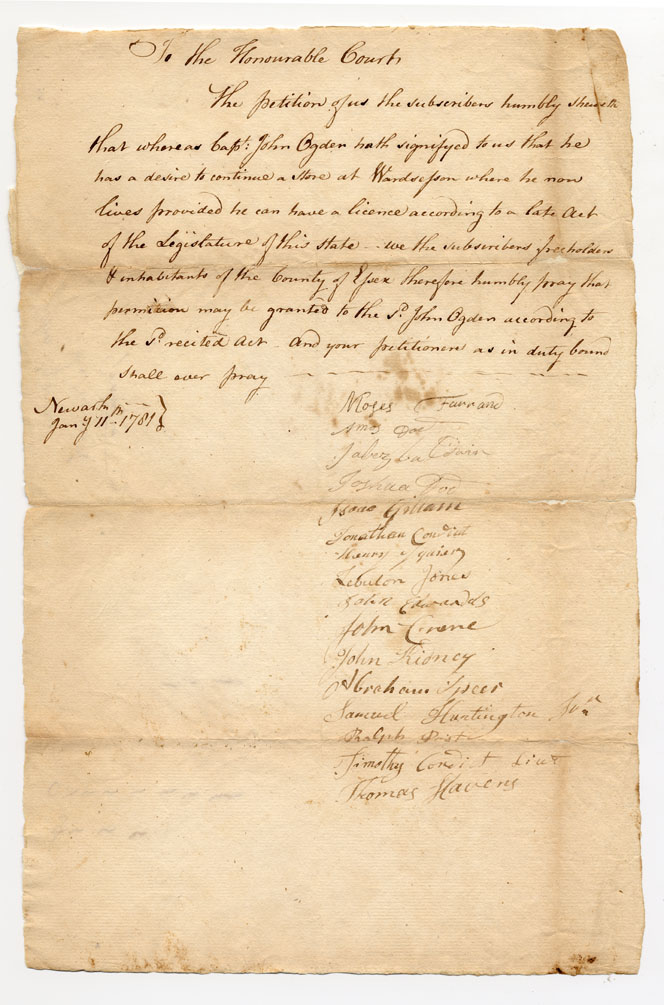 To the Honourable Court
The petition of us the subscribers humbly sheweth
that whereas Capt: John Ogden hath signifyed to us that he
has a desire to continue a Store at Wardsesson where he now
lives provided he can have a licence according to a late Act
of the Legislature of this state - we the subscribers freeholders
& inhabitants of the County of Essex therefore humbly pray that
permition may be granted to the Sd. John Ogden according to
the Sd. recited Act And your petitioners as in duty bound
shall ever pray
Newark
Jany 11th 1781
Moses Farrand
Amos Dod
Jabez baldwin
Joshua Dod
Isaac Gillam
Jonathan Condict
Henry Squier
Zebulon Jones
John Edwards
John Crane
John Kidney
Abraham Speer
Samuel Huntington
Ralph Post
Timothy Condict Lieut
Thomas Havens